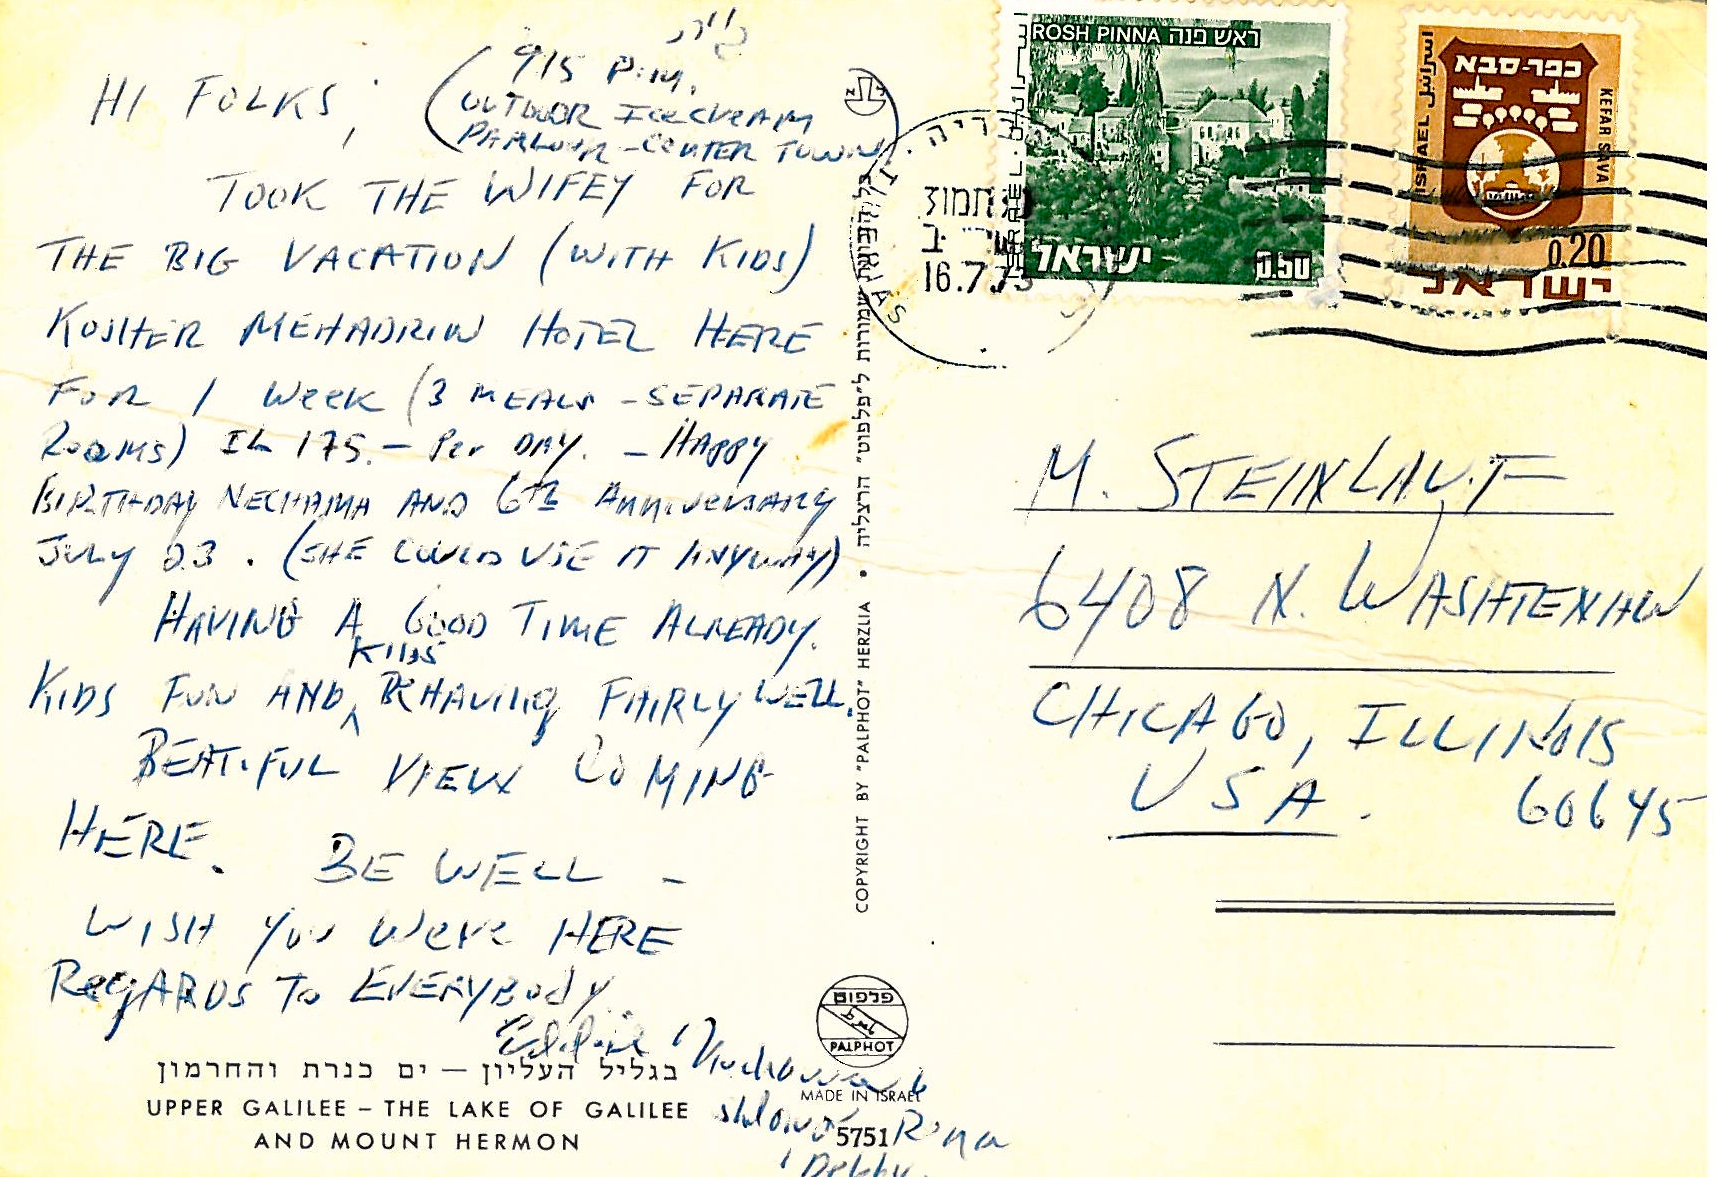 HI FOLKS,
(915 P.M.
OUTDOOR ICECREAM
PARLOUR - CENTER TOWN)
TOOK THE WIFEY FOR
THE BIG VACATION (WITH KIDS)
KOSHER MEHADRIN HOTEL HERE
FOR 1 WEEK (3 MEALS - SEPARATE
ROOMS) IL 175.- Per DAY. - HAPPY
BIRTHDAY NECHAMA AND 6TH ANNIVERSARY
JULY 23. (SHE COULD USE IT ANYWAY)
HAVING A GOOD TIME ALREADY.
KIDS
KIDS FUN AND BEHAVING FAIRLY WELL.
BEATIFUL VIEW COMING
HERE. BE WELL -
WISH YOU WERE HERE
REGARDS TO EVERYBODY
Eddie Nechama
Shlomo Rena
Debby
בגליל העליון — ים כנרת והחרמון
UPPER GALILEE – THE LAKE OF GALILEE
AND MOUNT HERMON
COPYRIGHT BY "PALPHOT" HERZLIA • כל הזכויות שמורות ל"פלפוט" הרצליה
פלפוט
PALPHOT
MADE IN ISRAEL
5751
ROSH PINNA ראש פנה
ישראל
0.50
ISRAEL
כפר-סבא
KEFAR SAVA
ISRAEL اسرائيل
0.20
ישראל
טבריה
TIBERIAS
תמוז
16.7.73
M. STEINLAUF
6408 N. WASHTENAW
CHICAGO, ILLINOIS
USA. 60645